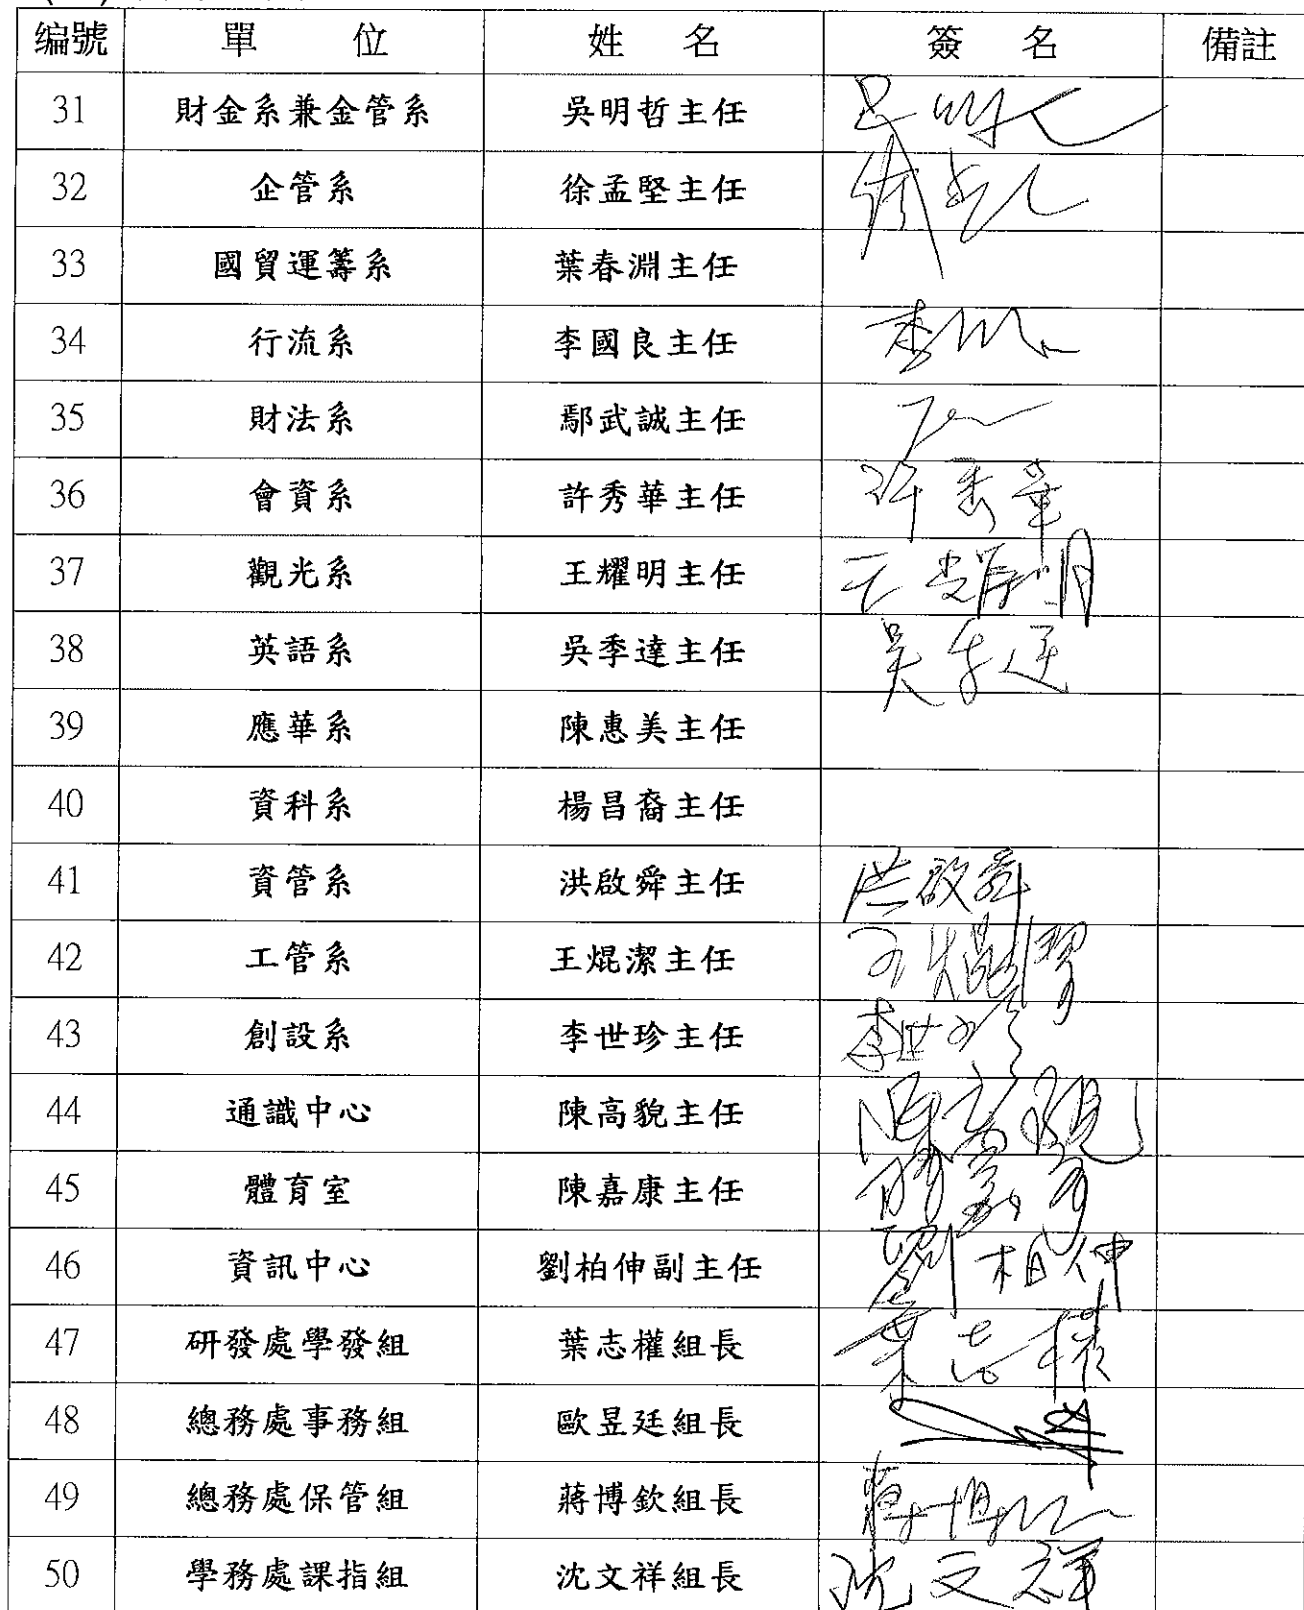 编號 單 位 姓 名 簽 名 備註
31 財金系兼金管系 吳明哲主任
32 企管系 徐孟堅主任
33 國貿運籌系 葉春淵主任
34 行流系 李國良主任
35 財法系 鄢武誠主任
36 會資系 許秀華主任 許秀華
37 觀光系 王耀明主任 王耀明
38 英語系 吳季達主任 吳季達
39 應華系 陳惠美主任
40 資科系 楊昌裔主任
41 資管系 洪啟舜主任 洪啟舜
42 工管系 王焜潔主任 王焜潔
43 創設系 李世珍主任 李世珍
44 通識中心 陳高貌主任 陳高貌
45 體育室 陳嘉康主任
46 資訊中心 劉柏伸副主任 劉柏伸
47 研發處學發組 葉志權組長 葉志權
48 總務處事務組 歐昱廷組長
49 總務處保管組 蔣博欽組長
50 學務處課指組 沈文祥組長 沈文祥